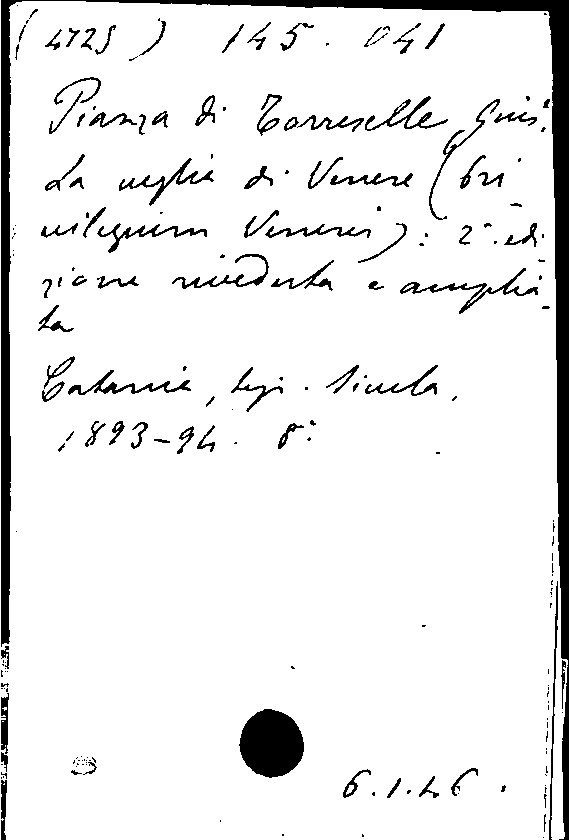 (4725) 145.041
Pianza di Torreselle, Gius.
La veglia di Venere (Pri-
vilegium Veneris): 2ª edi-
zione riveduta e amplia-
ta
Catania, tip. Sicula,
1893-94. 8°.
6.1.46.